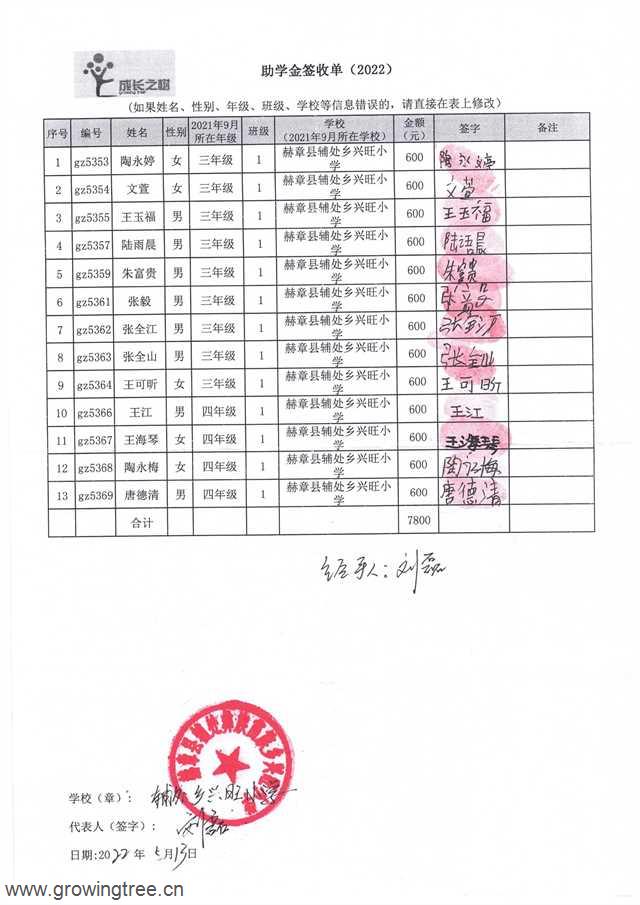 成长之树
助学金签收单（2022）
（如果姓名、性别、年级、班级、学校等信息错误的，请直接在表上修改）
序号 编号 姓名 性别 2021年9月所在年级 班级 学校（2021年9月所在学校） 金额（元） 签字 备注
1 gz5353 陶永婷 女 三年级 1 赫章县辅处乡兴旺小学 600 陶永婷
2 gz5354 文萱 女 三年级 1 赫章县辅处乡兴旺小学 600 文萱
3 gz5355 王玉福 男 三年级 1 赫章县辅处乡兴旺小学 600 王玉福
4 gz5357 陆雨晨 男 三年级 1 赫章县辅处乡兴旺小学 600 陆语晨
5 gz5359 朱富贵 男 三年级 1 赫章县辅处乡兴旺小学 600 朱富贵
6 gz5361 张毅 男 三年级 1 赫章县辅处乡兴旺小学 600
7 gz5362 张全江 男 三年级 1 赫章县辅处乡兴旺小学 600 张全江
8 gz5363 张全山 男 三年级 1 赫章县辅处乡兴旺小学 600 张全山
9 gz5364 王可昕 女 三年级 1 赫章县辅处乡兴旺小学 600 王可昕
10 gz5366 王江 男 四年级 1 赫章县辅处乡兴旺小学 600 王江
11 gz5367 王海琴 女 四年级 1 赫章县辅处乡兴旺小学 600 王海琴
12 gz5368 陶永梅 女 四年级 1 赫章县辅处乡兴旺小学 600 陶永梅
13 gz5369 唐德清 男 四年级 1 赫章县辅处乡兴旺小学 600 唐德清
合计 7800
经手人：刘磊
学校（章）： 辅处乡兴旺小学
代表人（签字）： 刘磊
日期:2022年 5月13日
www.growingtree.cn